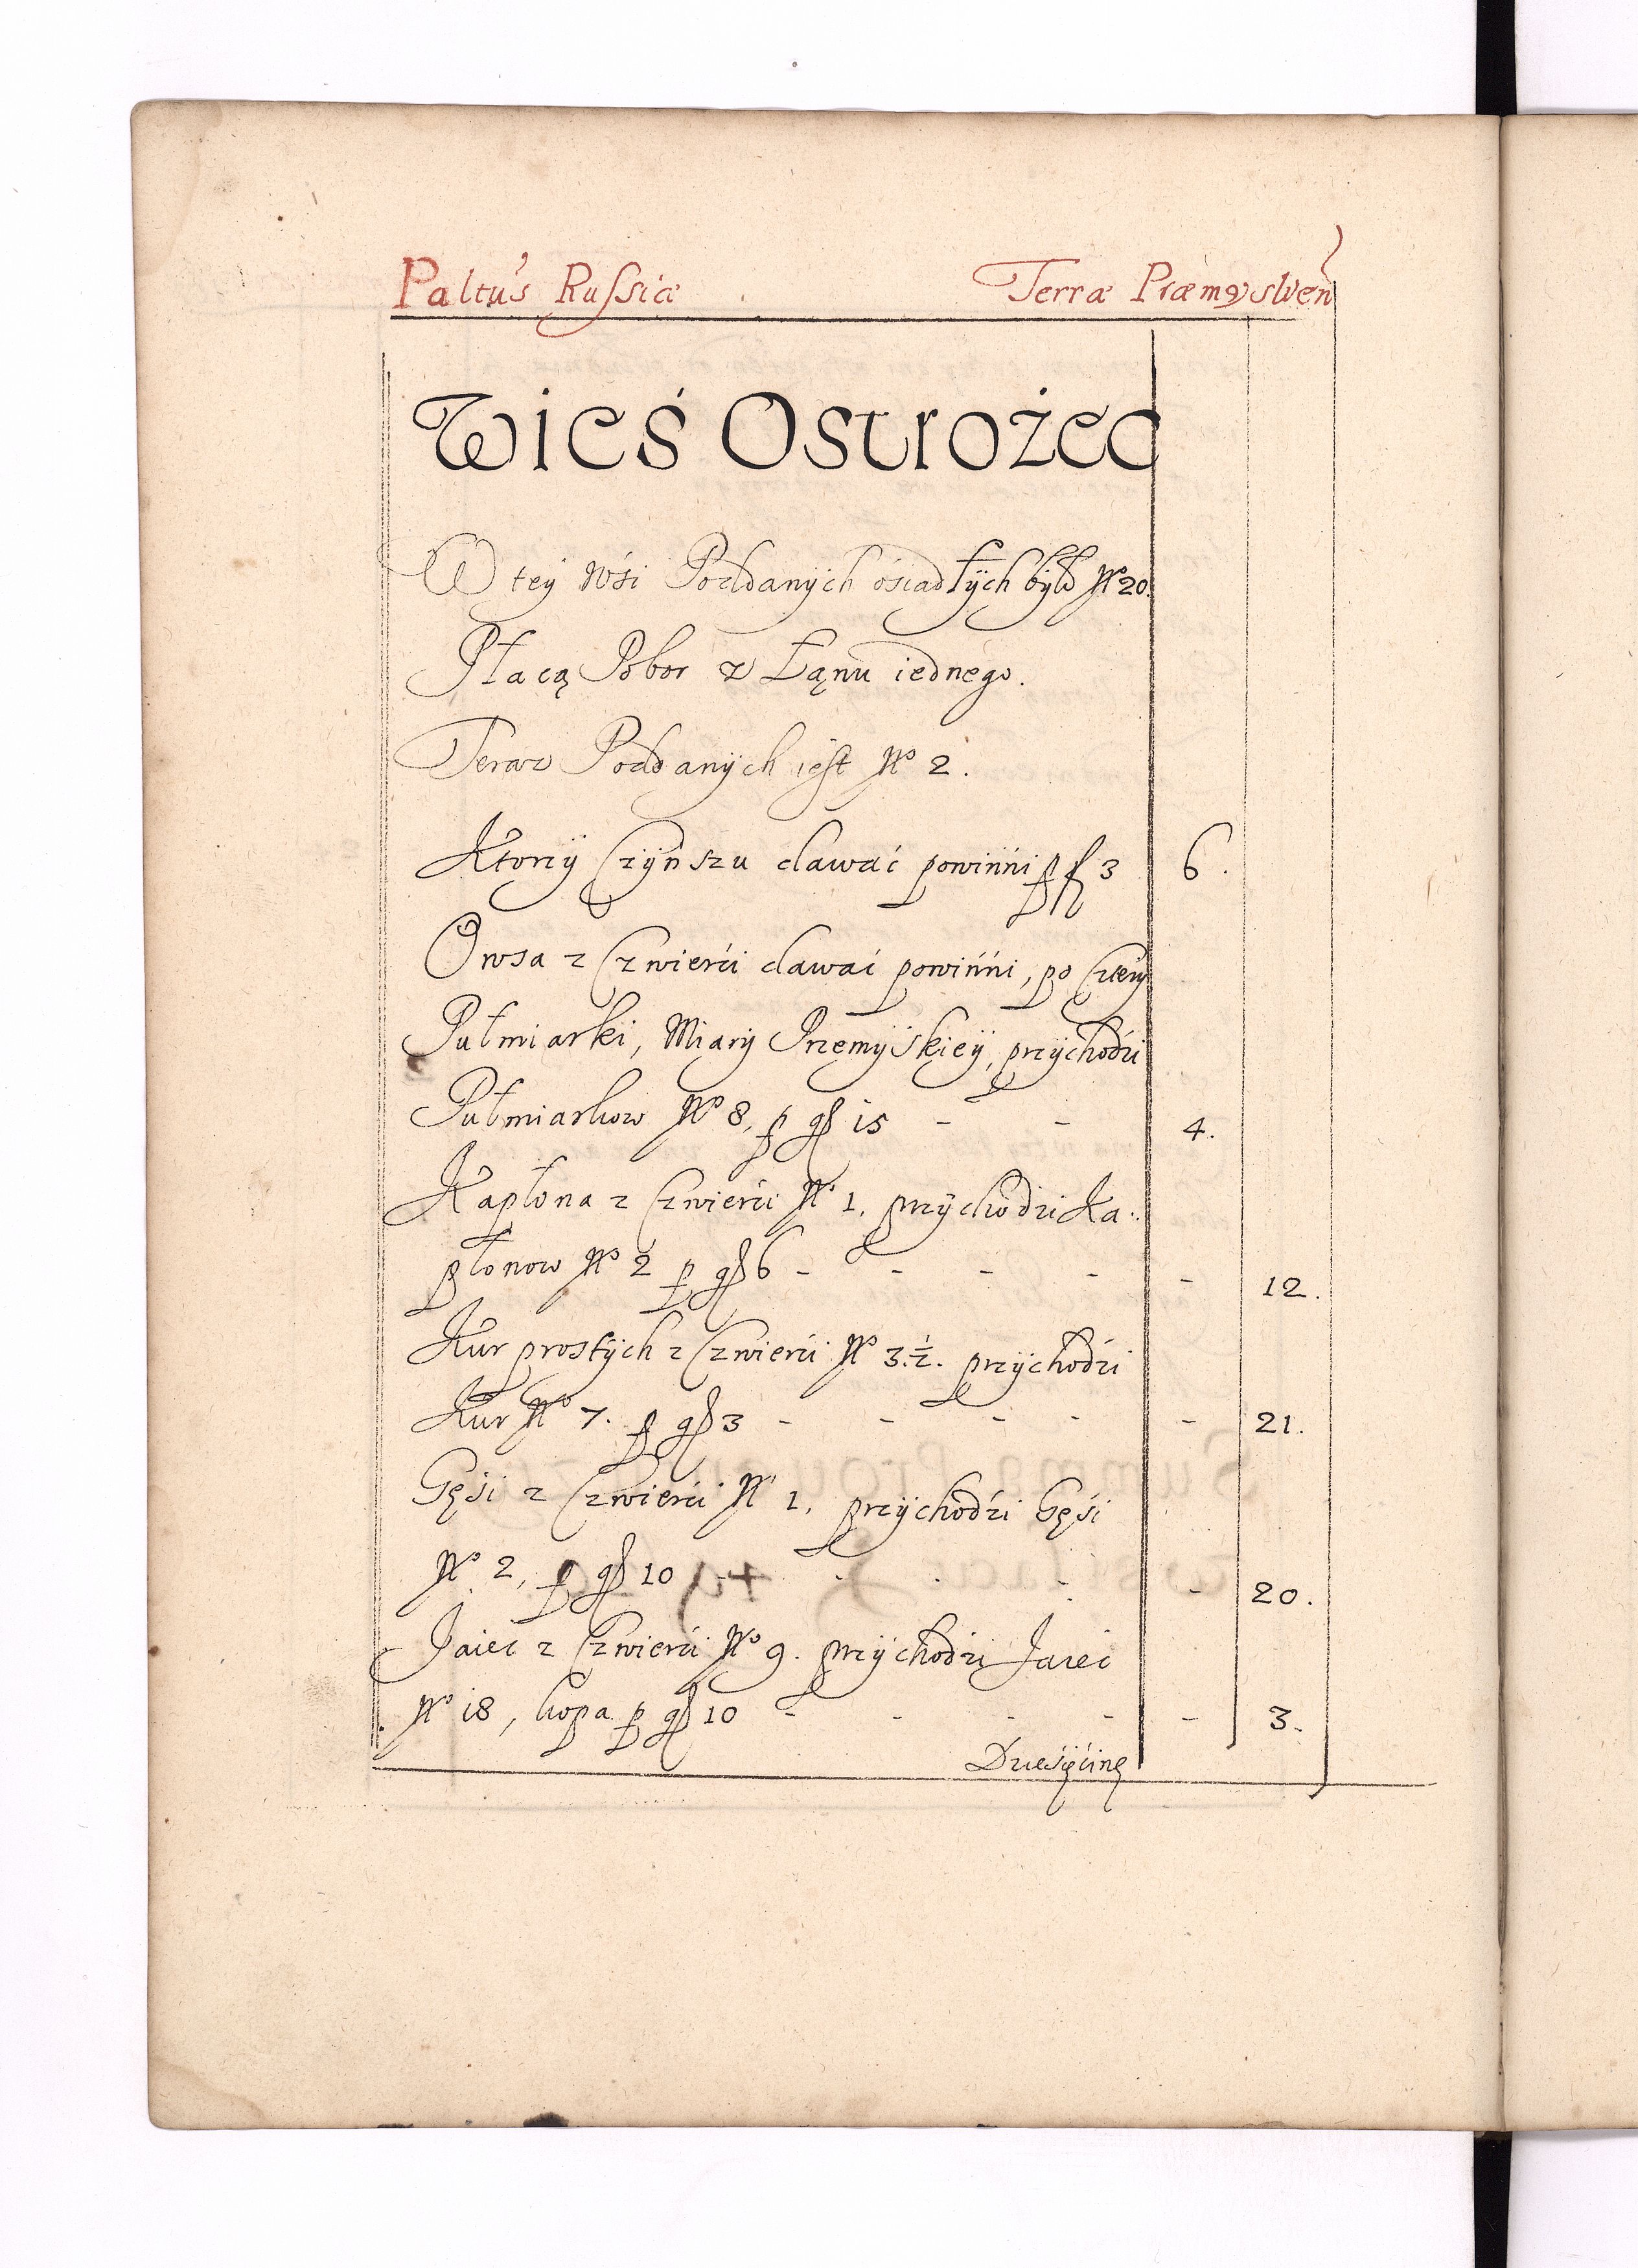 Paltus Russiæ Terræ Præmysłien
Wieś Ostrożec
W tey Wśi Poddanÿch ośiadłÿch było No 20.
Płacą Pobor z Łąnu iednego.
Teraz Poddanÿch iest No 2.
Ktorzÿ Czÿnszu dawać powinńi p f 3 6.
Owsa z Czwierći dawać powinńi, po Cztery
Pułmiarki, Miarÿ Przemÿskieÿ, przÿchodźi
Pułmiarkow No 8, p gß 15 - - 4.
Kapłona z Czwierći No 1. przÿchodzi Ka:
płonow No 2 p gß 6 - - - - - 12.
Kur prostÿch z Czwierći No 3.½. przÿchodźi
Kur No 7. p gß 3 - - - - - 21.
Gęśi z Czwierći No 1. przÿchodźi Gęśi
No 2, p gß 10 - - - - - 20.
Jaiec z Czwierći No 9. przÿchodzi Jaiec
No 18, kopa p gß 10 - - - - - 3.
Dzieśięćinę